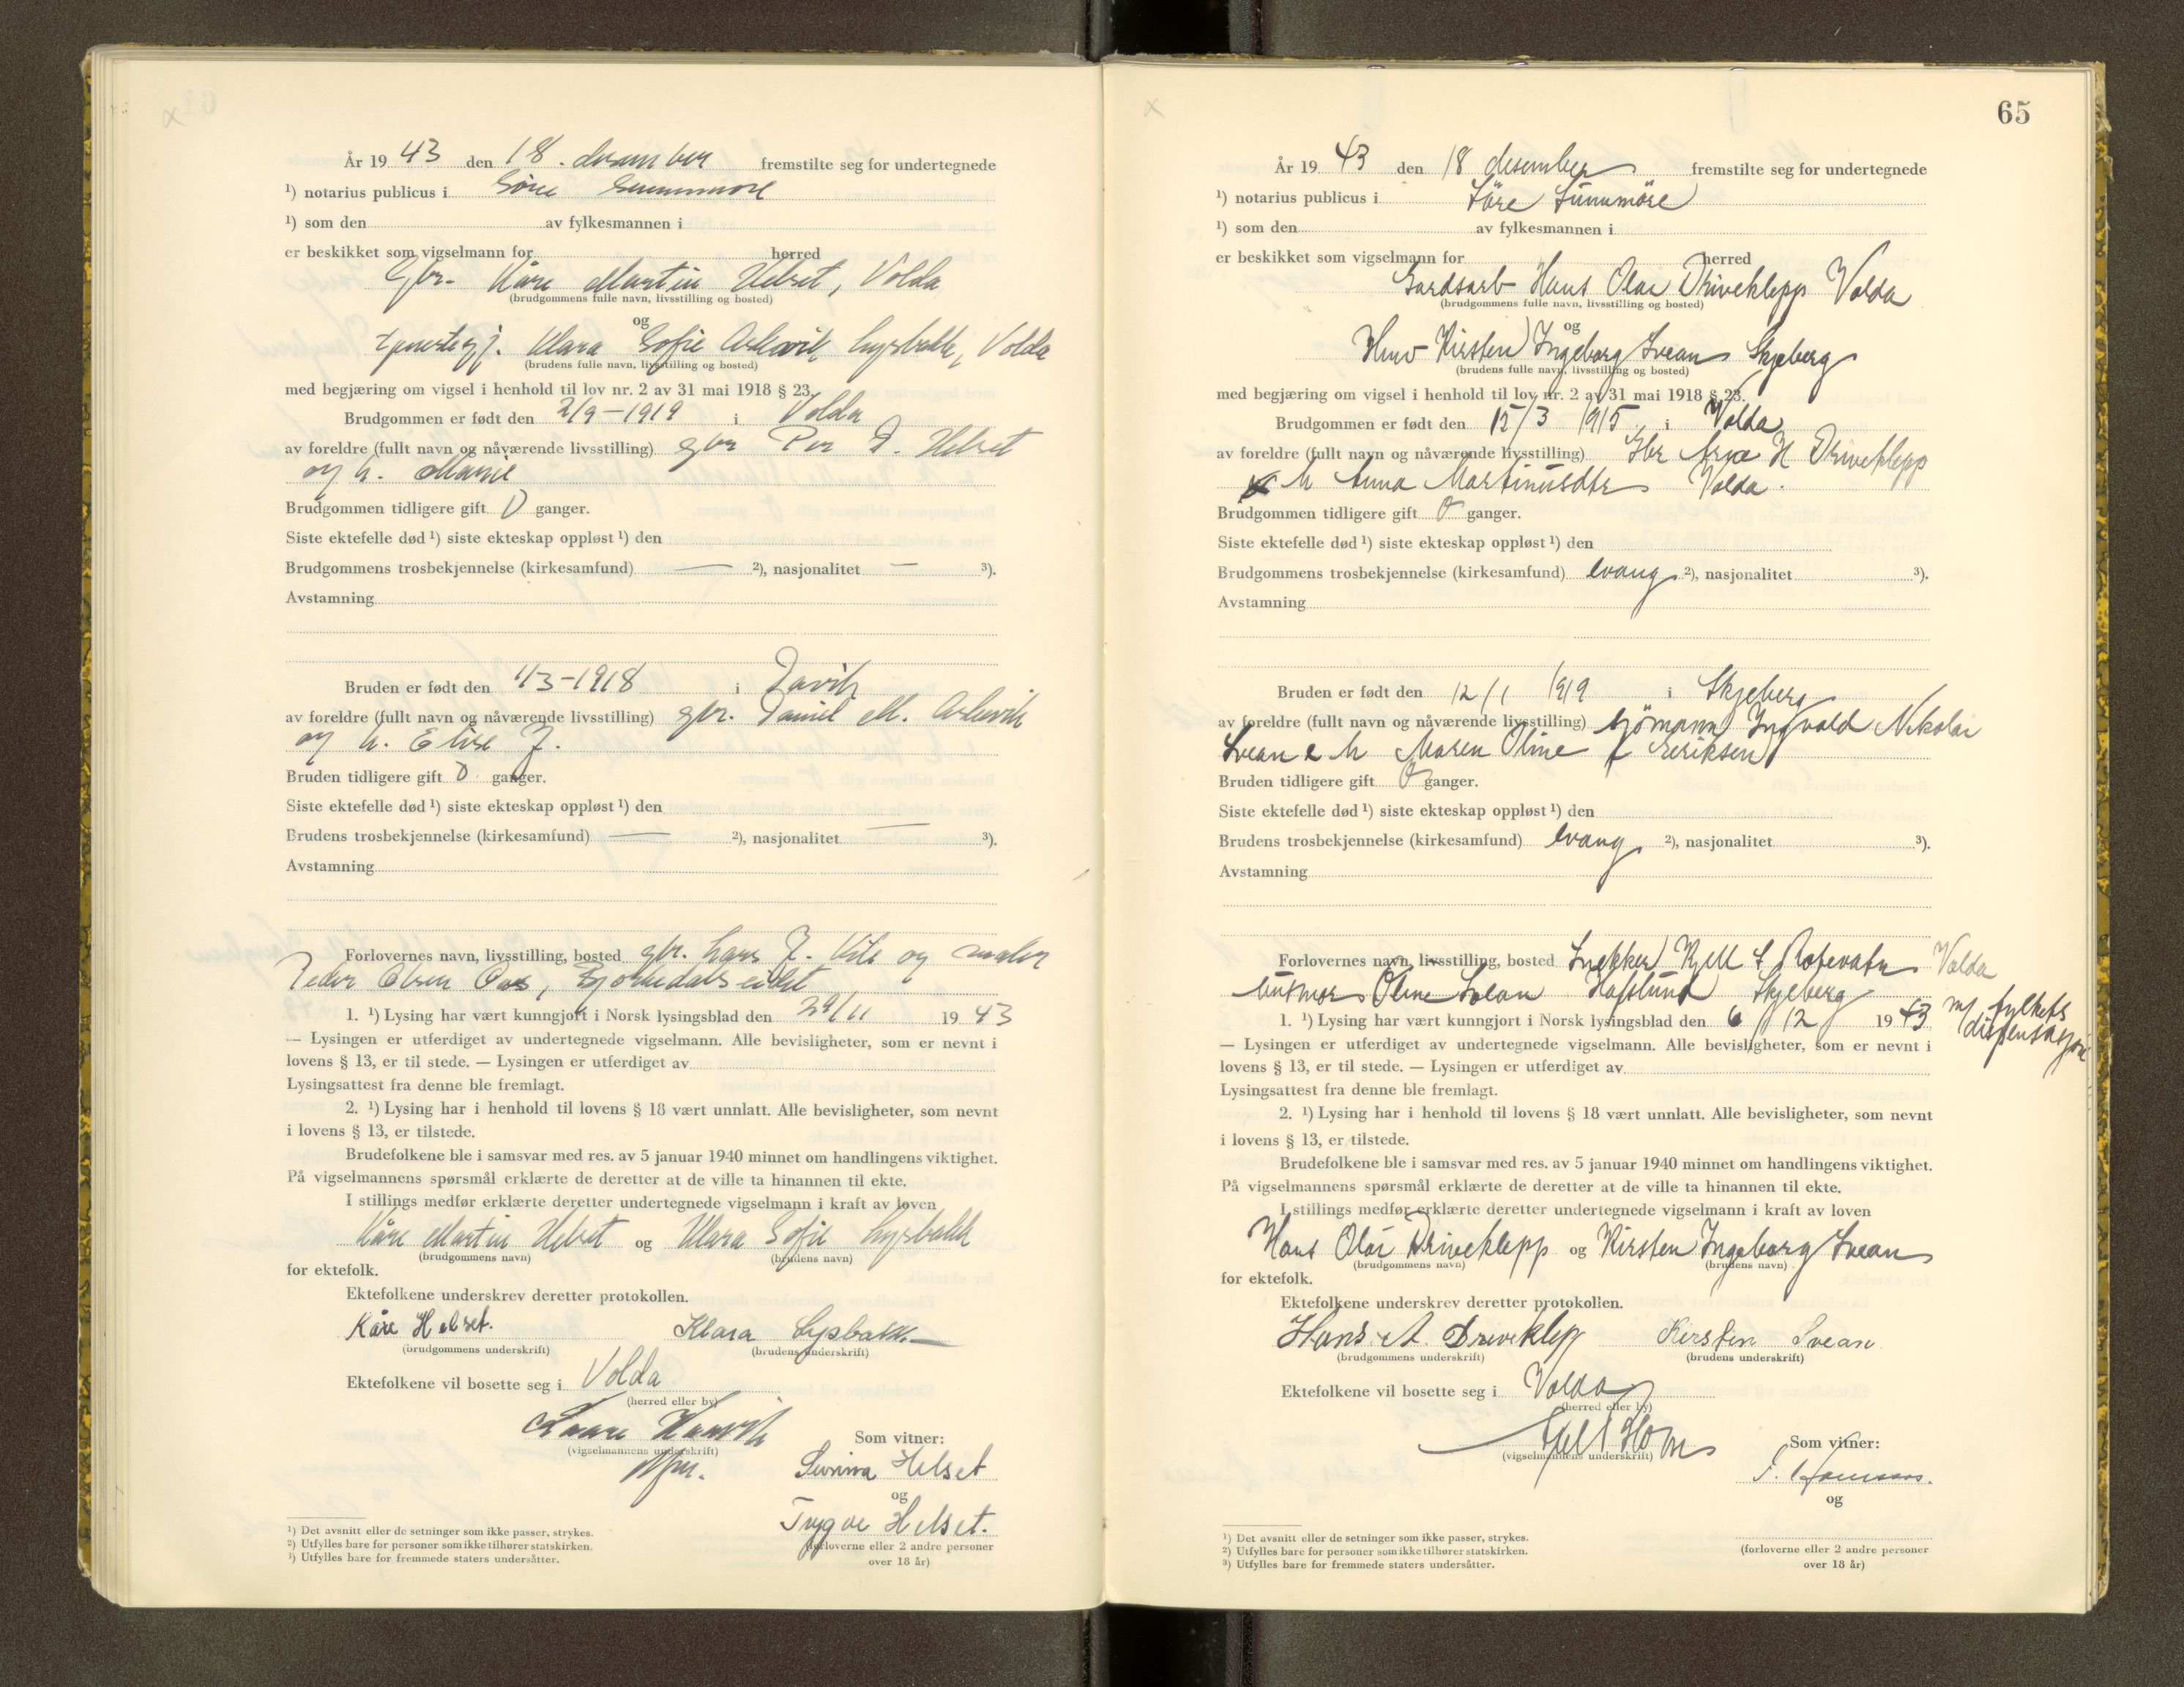 År 19 43 den 18. desember fremstilte seg for undertegnede
¹) notarius publicus i Søre Sunnmøre
¹) som den av fylkesmannen i
er beskikket som vigselmann for herred
Gbr. Kåre Martin Helset, Volda
(brudgommens fulle navn, livsstilling og bosted)
og
Klara Sofie Lysbakk, Volda
(brudens fulle navn, livsstilling og bosted)
med begjæring om vigsel i henhold til lov nr. 2 av 31 mai 1918 § 23.
Brudgommen er født den 2/9-1919 i Volda
av foreldre (fullt navn og nåværende livsstilling) gbr Per Helset
og h. Marie
Brudgommen tidligere gift 0 ganger.
Siste ektefelle død ¹) siste ekteskap oppløst ¹) den
Brudgommens trosbekjennelse (kirkesamfund) — ²), nasjonalitet — ³).
Avstamning
Bruden er født den 1/3-1918 i Davik
av foreldre (fullt navn og nåværende livsstilling) gbr. Daniel M.
og h. Elise J.
Bruden tidligere gift 0 ganger.
Siste ektefelle død ¹) siste ekteskap oppløst ¹) den
Brudens trosbekjennelse (kirkesamfund) — ²), nasjonalitet — ³).
Avstamning
Forlovernes navn, livsstilling, bosted gbr. Lars J. og maler
Peder Olsen Aas,
1. ¹) Lysing har vært kunngjort i Norsk lysingsblad den 29/11 19 43
— Lysingen er utferdiget av undertegnede vigselmann. Alle bevisligheter, som er nevnt i
lovens § 13, er til stede. — Lysingen er utferdiget av
Lysingsattest fra denne ble fremlagt.
2. ¹) Lysing har i henhold til lovens § 18 vært unnlatt. Alle bevisligheter, som nevnt
i lovens § 13, er tilstede.
Brudefolkene ble i samsvar med res. av 5 januar 1940 minnet om handlingens viktighet.
På vigselmannens spørsmål erklærte de deretter at de ville ta hinannen til ekte.
I stillings medfør erklærte deretter undertegnede vigselmann i kraft av loven
Kåre Martin Helset og Klara Sofie Lysbakk
(brudgommens navn) (brudens navn)
for ektefolk.
Ektefolkene underskrev deretter protokollen.
Kåre Helset. Klara Lysbakk
(brudgommens underskrift) (brudens underskrift)
Ektefolkene vil bosette seg i Volda
(herred eller by)
(vigselmannens underskrift)
Som vitner:
Helset
og
Trygve Helset.
(forloverne eller 2 andre personer
over 18 år)
¹) Det avsnitt eller de setninger som ikke passer, strykes.
²) Utfylles bare for personer som ikke tilhører statskirken.
³) Utfylles bare for fremmede staters undersåtter.
65
År 19 43 den 18 desember fremstilte seg for undertegnede
¹) notarius publicus i Söre Sünnmöre
¹) som den av fylkesmannen i
er beskikket som vigselmann for herred
Gardsarb Hans Olai Driveklepp Volda
(brudgommens fulle navn, livsstilling og bosted)
og
Kirsten Ingeborg Svean Skjeberg
(brudens fulle navn, livsstilling og bosted)
med begjæring om vigsel i henhold til lov nr. 2 av 31 mai 1918 § 23.
Brudgommen er født den 15/3 1915 i Volda
av foreldre (fullt navn og nåværende livsstilling) Gbr H Driveklepp
h Anna Martinusdtr Volda.
Brudgommen tidligere gift 0 ganger.
Siste ektefelle død ¹) siste ekteskap oppløst ¹) den
Brudgommens trosbekjennelse (kirkesamfund) evang ²), nasjonalitet ³).
Avstamning
Bruden er født den 12/1 1919 i Skjeberg
av foreldre (fullt navn og nåværende livsstilling) sjömann Ingvald Nikolai
Svean & h Maren Oline f Eriksen
Bruden tidligere gift 0 ganger.
Siste ektefelle død ¹) siste ekteskap oppløst ¹) den
Brudens trosbekjennelse (kirkesamfund) evang ²), nasjonalitet ³).
Avstamning
Forlovernes navn, livsstilling, bosted Snekker Kjell Rotevatn Volda
Oline Svean Hafslund Skjeberg
1. ¹) Lysing har vært kunngjort i Norsk lysingsblad den 6/12 19 43 m/ fylkets
dispensasjon
— Lysingen er utferdiget av undertegnede vigselmann. Alle bevisligheter, som er nevnt i
lovens § 13, er til stede. — Lysingen er utferdiget av
Lysingsattest fra denne ble fremlagt.
2. ¹) Lysing har i henhold til lovens § 18 vært unnlatt. Alle bevisligheter, som nevnt
i lovens § 13, er tilstede.
Brudefolkene ble i samsvar med res. av 5 januar 1940 minnet om handlingens viktighet.
På vigselmannens spørsmål erklærte de deretter at de ville ta hinannen til ekte.
I stillings medfør erklærte deretter undertegnede vigselmann i kraft av loven
Hans Olai Driveklepp og Kirsten Ingeborg Svean
(brudgommens navn) (brudens navn)
for ektefolk.
Ektefolkene underskrev deretter protokollen.
Hans A. Driveklepp Kirsten Svean
(brudgommens underskrift) (brudens underskrift)
Ektefolkene vil bosette seg i Volda
(herred eller by)
(vigselmannens underskrift)
Som vitner:
og
(forloverne eller 2 andre personer
over 18 år)
¹) Det avsnitt eller de setninger som ikke passer, strykes.
²) Utfylles bare for personer som ikke tilhører statskirken.
³) Utfylles bare for fremmede staters undersåtter.